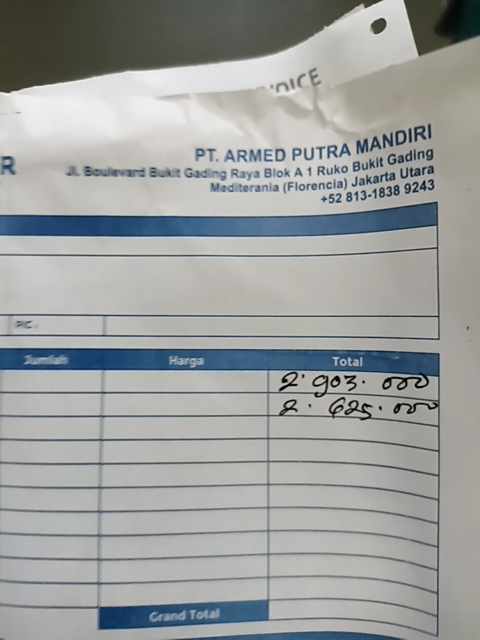 VOICE
R
PT. ARMED PUTRA MANDIRI
Jl. Boulevard Bukit Gading Raya Blok A 1 Ruko Bukit Gading
Mediterania (Florencia) Jakarta Utara
+52 813-1838 9243
PIC :
Jumlah Harga Total
2.903.000
2.625.000
Grand Total